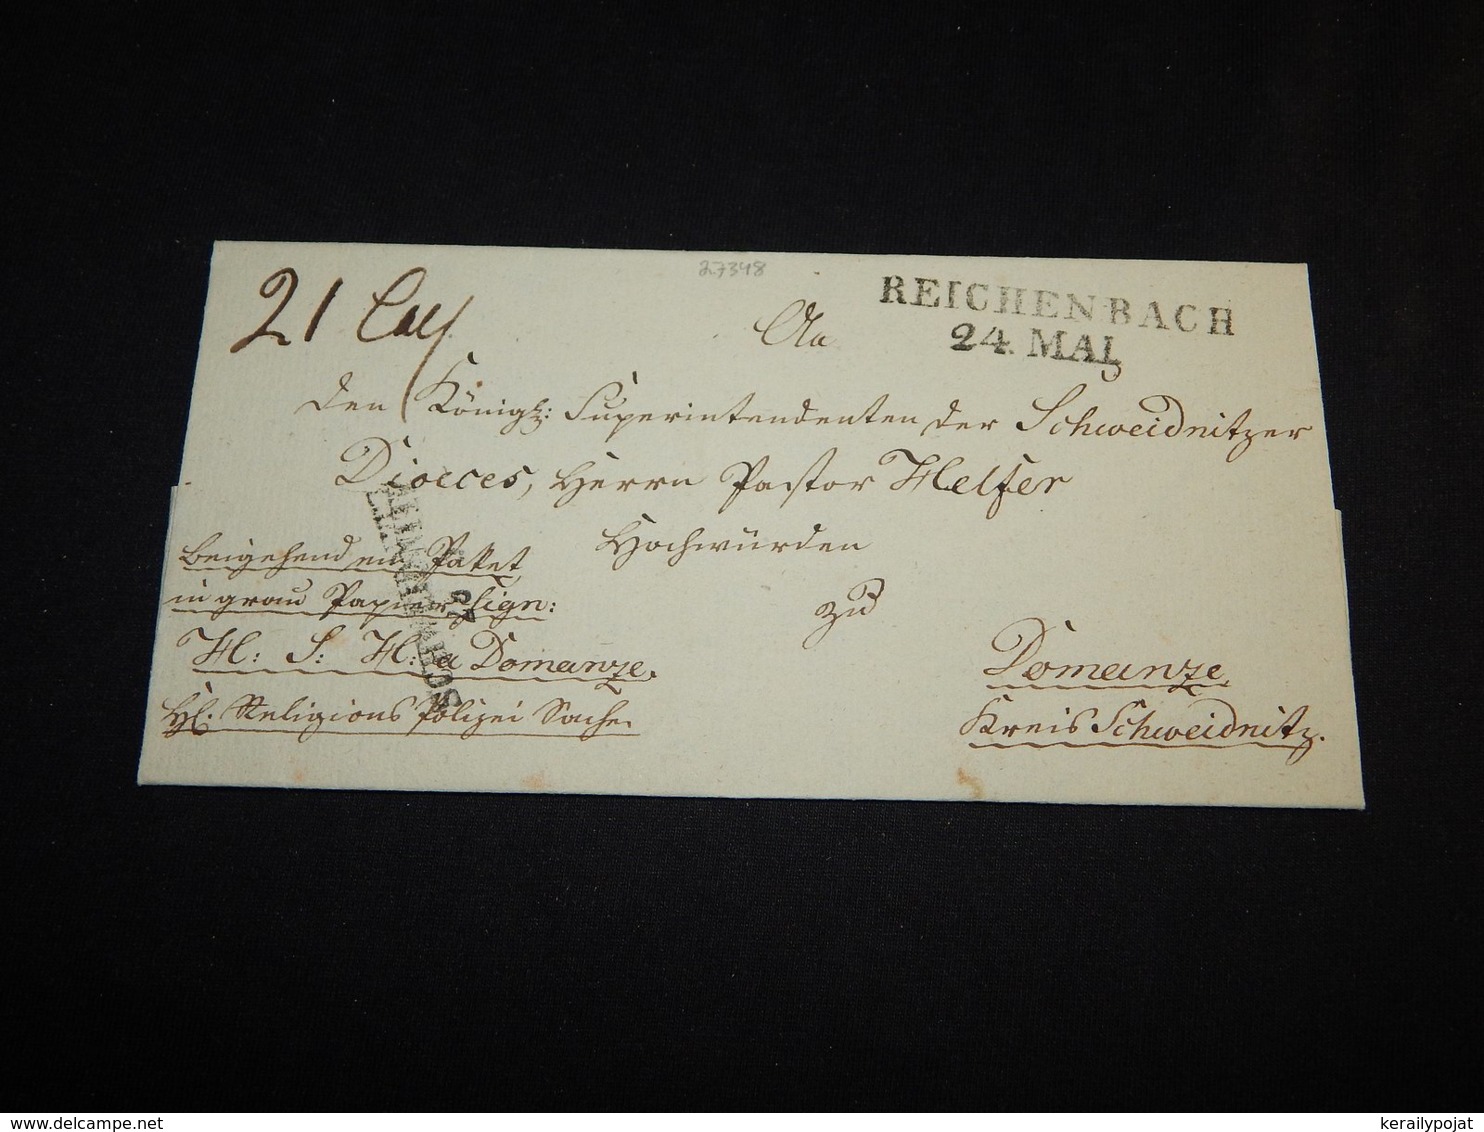 27348
REICHENBACH
24. MAI
21
An
den Königl: Superintendenten der Schweidnitzer
Dioeces, Herrn Pastor Helfer
Hochwürden
zu
Domanze,
Kreis Schweidnitz.
Beigehend ein Paket
in grau Papier sign:
H: S: H: a Domanze.
Hl. Religions Polizei Sache.
kerailypojat